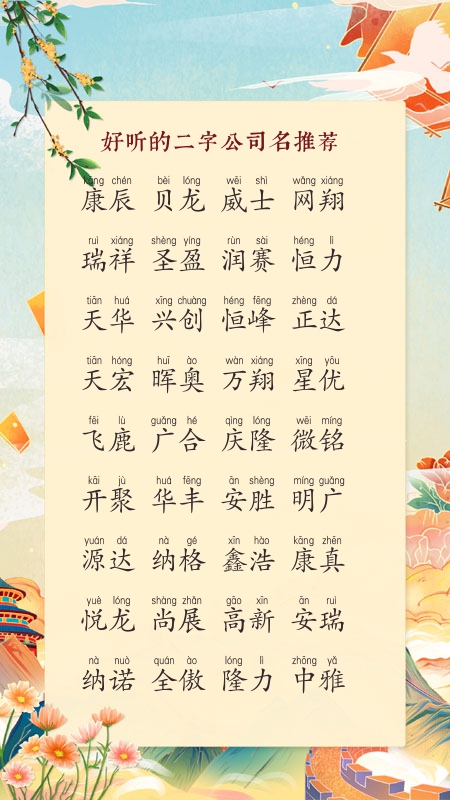 好听的二字公司名推荐
kāng chén bèi lóng wēi shì wǎng xiáng
康辰 贝龙 威士 网翔
ruì xiáng shèng yíng rùn sài héng lì
瑞祥 圣盈 润赛 恒力
tiān huá xīng chuàng héng fēng zhèng dá
天华 兴创 恒峰 正达
tiān hóng huī ào wàn xiáng xīng yōu
天宏 晖奥 万翔 星优
fēi lù guǎng hé qìng lóng wēi míng
飞鹿 广合 庆隆 微铭
kāi jù huá fēng ān shèng míng guǎng
开聚 华丰 安胜 明广
yuán dá nà gé xīn hào kāng zhēn
源达 纳格 鑫浩 康真
yuè lóng shàng zhǎn gāo xīn ān ruì
悦龙 尚展 高新 安瑞
nà nuò quán ào lóng lì zhōng yǎ
纳诺 全傲 隆力 中雅